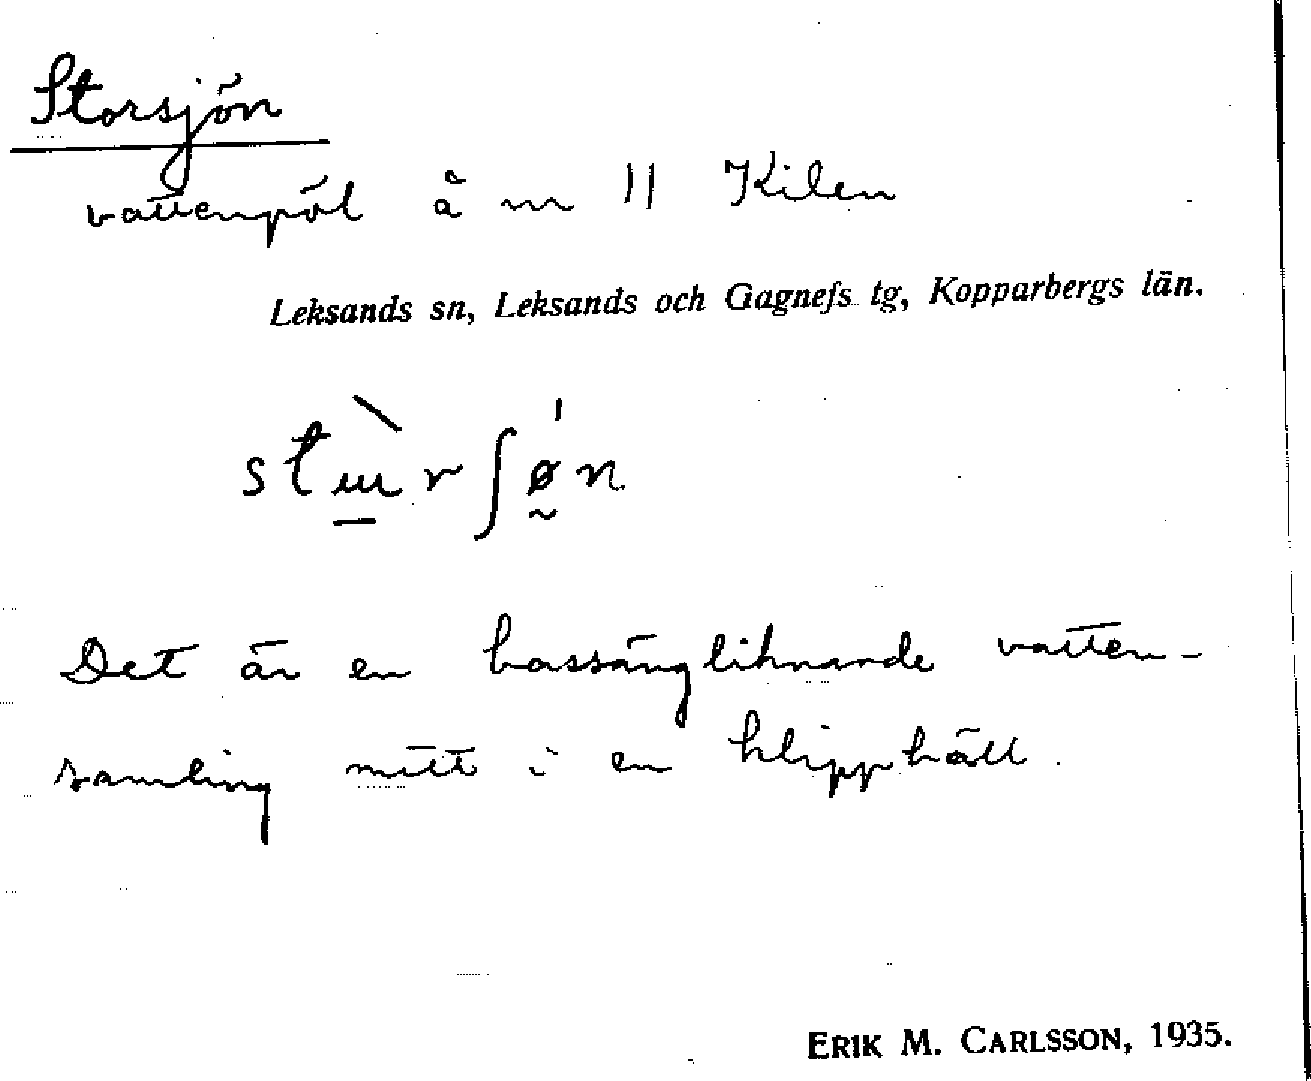 Storsjön
vattenpöl å m 11 Kilen
Leksands sn, Leksands och Gagnefs tg, Kopparbergs län.
stɯ̲̀rʃǿ̰n
Det är en bassängliknande vatten-
samling mitt i en klipphäll.
ERIK M. CARLSSON, 1935.